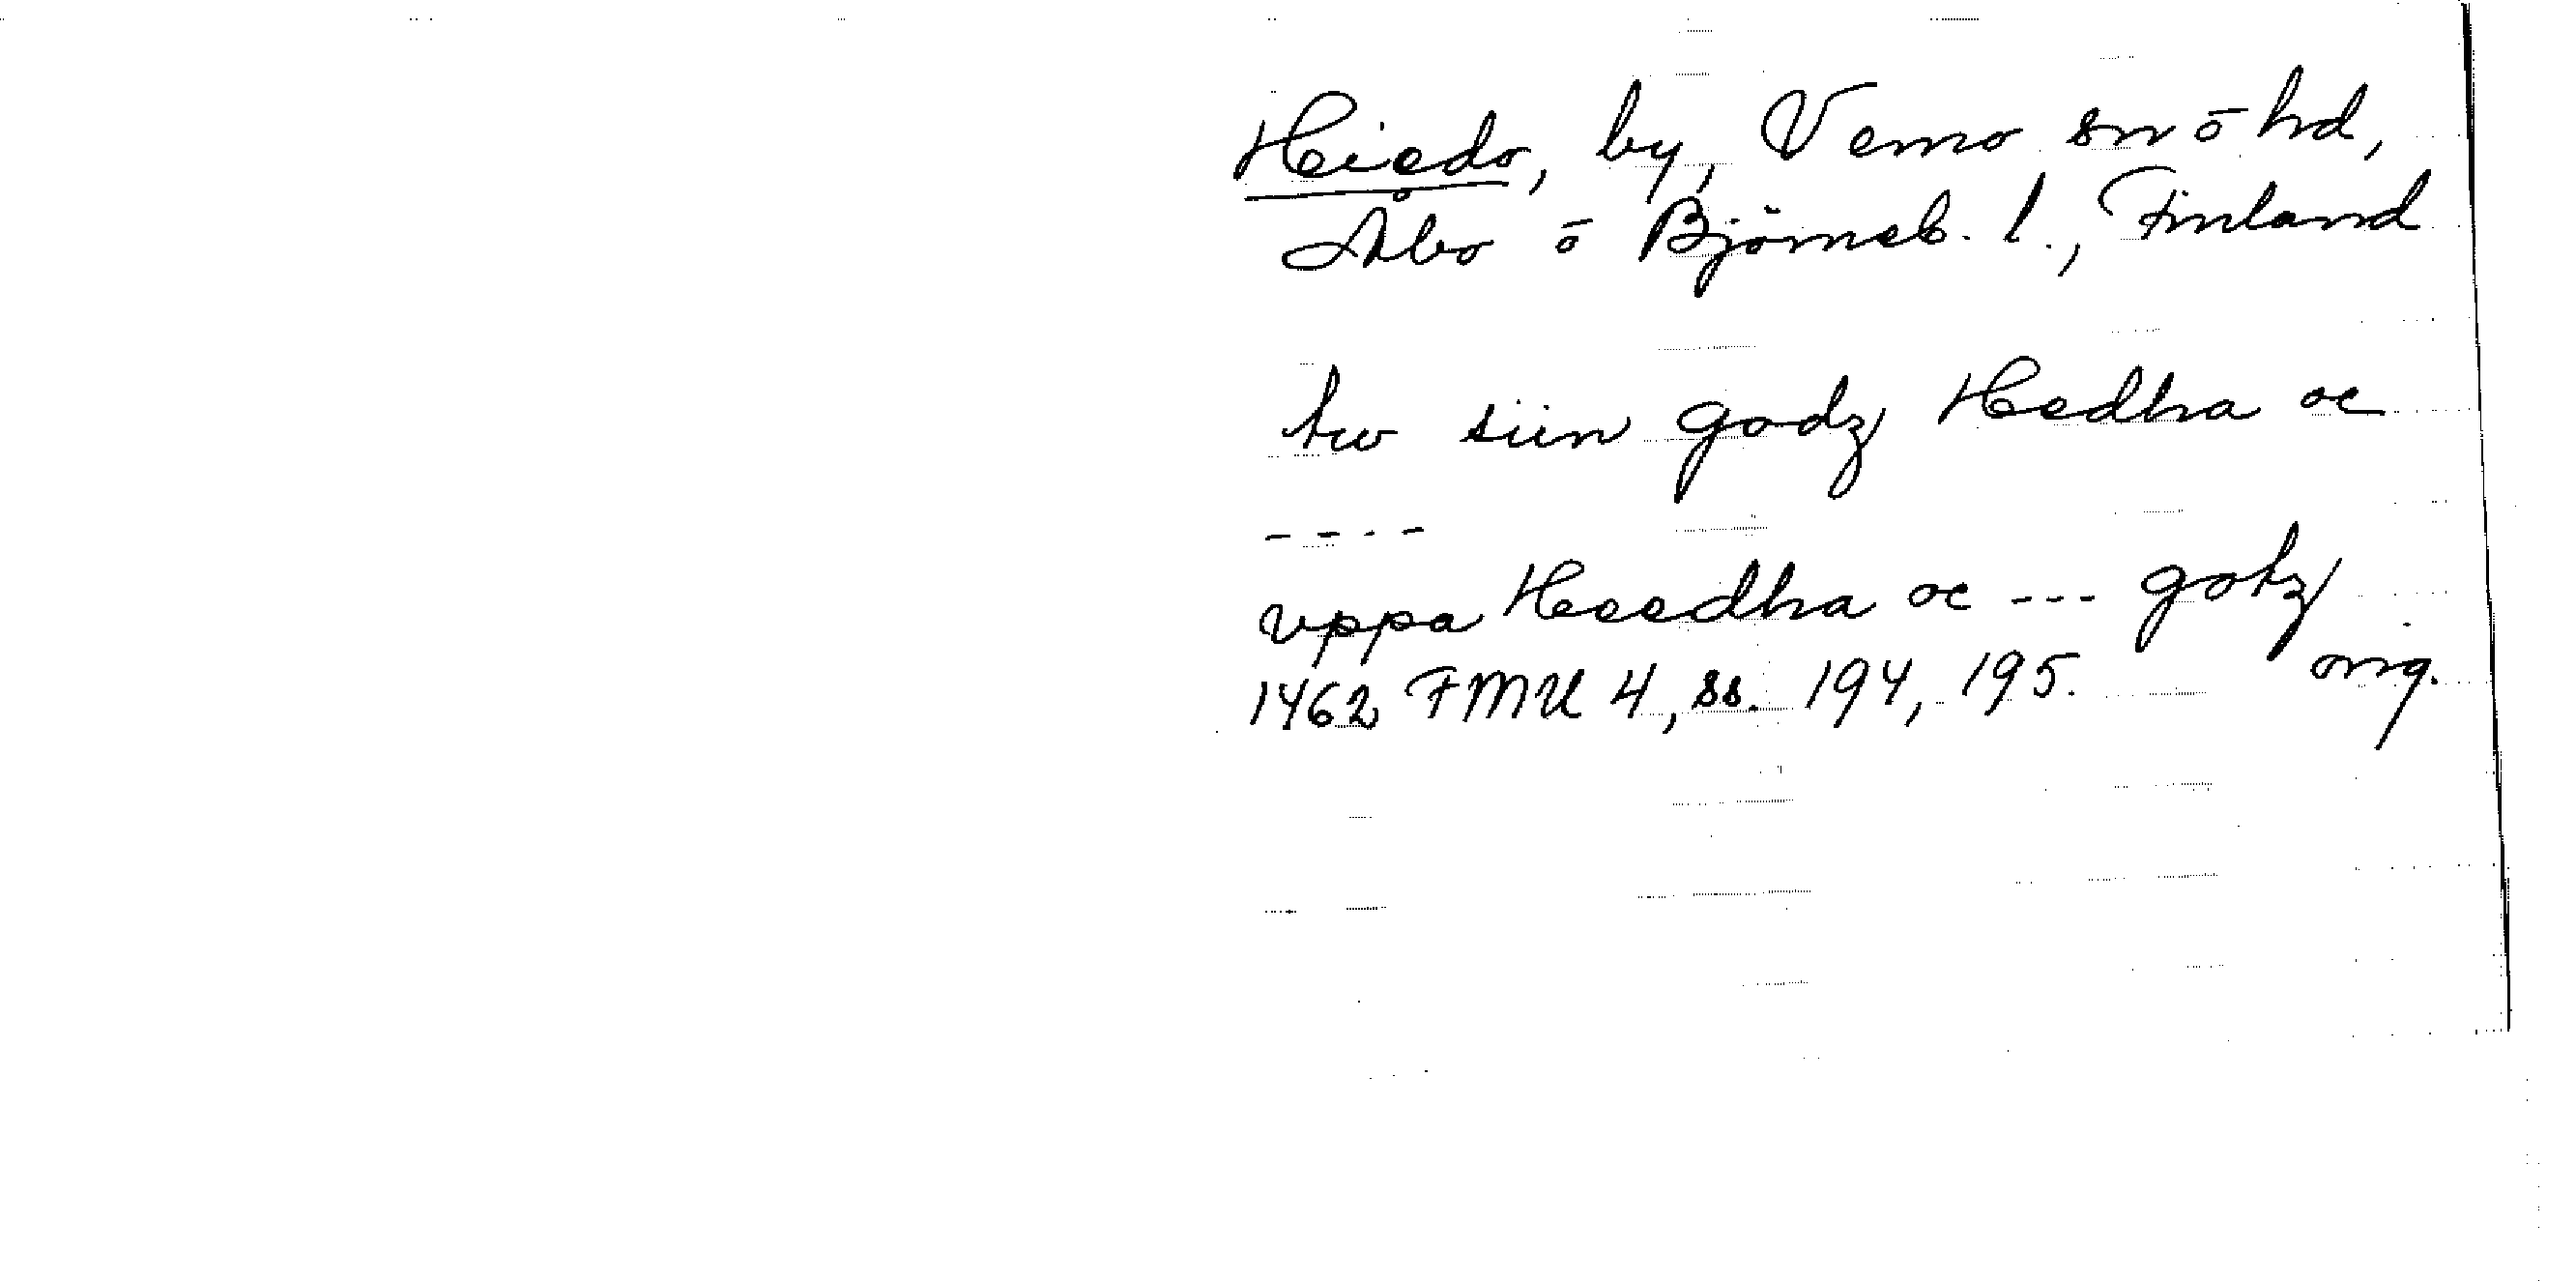 Heiedo, by, Vemo sn ō hd,
Åbo ō Björneb. l., Finland
tw siin godz Hedha oc
- - - -
vppa Heedha oc --- gotz
1462 FMU 4, ss. 194, 195. orig.